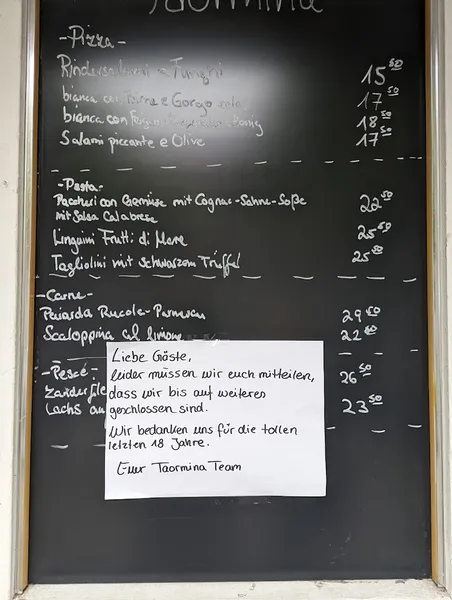 Taormina
-Pizza-
Rindersalami - Funghi 15⁵⁰
bianca con Birne e Gorgo 17⁵⁰
bianca con 18⁵⁰
Salami piccante e Olive 17⁵⁰
-Pasta-
Paccheri con Gemüse mit Cognac-Sahne-Soße 22⁵⁰
mit Salsa Calabrese
Linguini Frutti di Mare 25⁵⁰
Tagliolini mit schwarzem Trüffel 25⁵⁰
-Carne-
Paiarda Rucola-Parmesan 29⁵⁰
Scaloppina al limone 22⁵⁰
-Pesce- 26⁵⁰
Zanderfile
Lachs au 23⁵⁰
Liebe Gäste,
leider müssen wir euch mitteilen,
dass wir bis auf weiteres
geschlossen sind.
Wir bedanken uns für die tollen
letzten 18 Jahre.
Euer Taormina Team